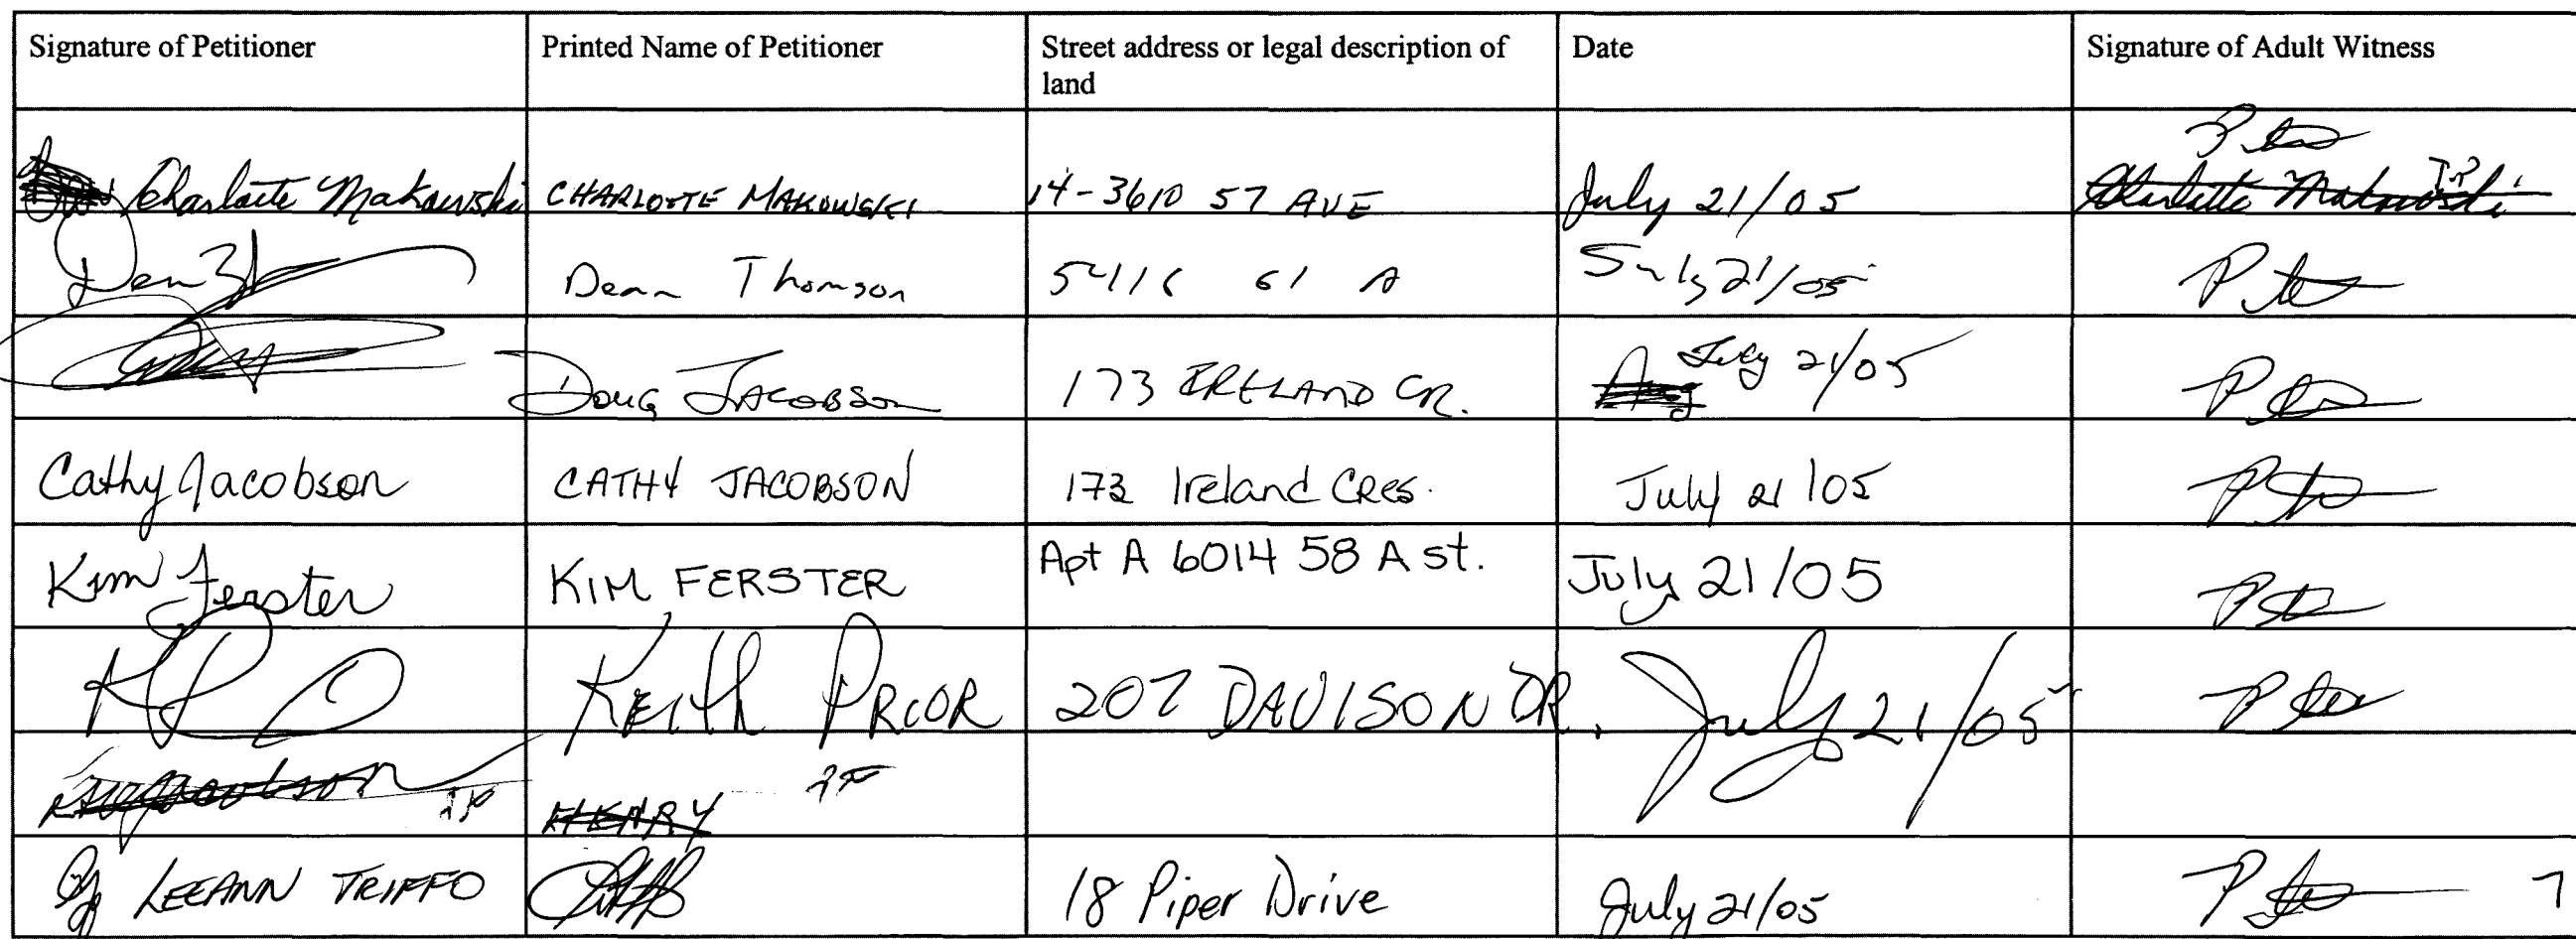 Signature of Petitioner Printed Name of Petitioner Street address or legal description of land Date Signature of Adult Witness
Charlotte Makowski CHARLOTTE MAKOWSKI 14-3610 57 AVE July 21/05 Charlotte Makowski
Dean Thomson 5416 61 A July 21/05
DOUG JACOBSON 173 IRELAND CR. July 21/05
Cathy Jacobson CATHY JACOBSON 173 Ireland CRes. July 21/05
Kim Ferster KIM FERSTER Apt A 6014 58 A st. July 21/05
KEITH PRIOR 207 DAVISON DR. July 21/05
HENRY
LEEANN TRIFFO 18 Piper Drive July 21/05 7